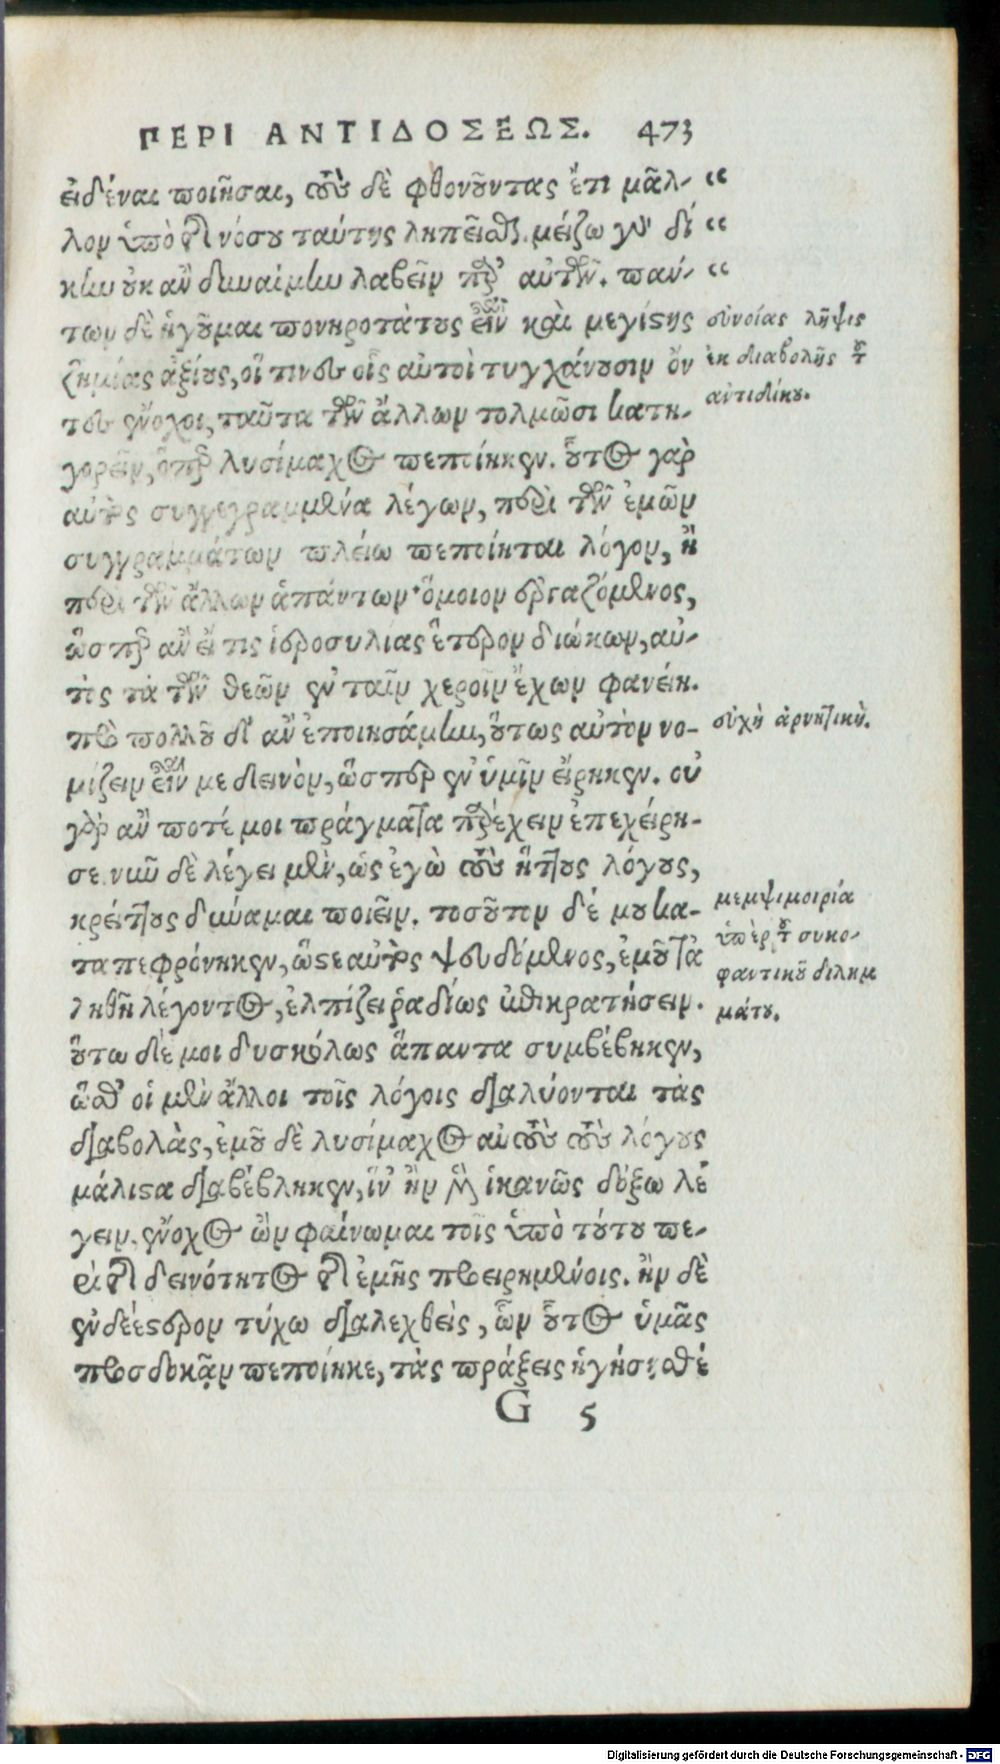 ΠΕΡΙ ΑΝΤΙΔΟΣΕΩΣ. 473
εἰδέναι ποιῆσαι, τοὺς δὲ φθονοῦντας ἔτι μᾶλ- “
λον ὑπὸ τῆς νόσου ταύτης λυπεῖσθαι. μείζω γὰρ δί “
κην οὐκ ἂν δυναίμην λαβεῖν παρ' αὐτῶν. πάν- “
των δὲ ἡγοῦμαι πονηροτάτους εἶναι καὶ μεγίστης
ζημίας ἀξίους, οἵ τινες οἷς αὐτοὶ τυγχάνουσιν ὄν
τες ἔνοχοι, ταῦτα τῶν ἄλλων τολμῶσι κατη-
γορεῖν, ὅπερ λυσίμαχος πεποίηκεν. οὗτος γὰρ
αὐτὸς συγγεγραμμένα λέγων, περὶ τῶν ἐμῶν
συγγραμμάτων πλείω πεποίηται λόγον, ἢ
περὶ τῶν ἄλλων ἁπάντων· ὅμοιον ἐργαζόμενος,
ὥσπερ ἂν εἴ τις ἱεροσυλίας ἕτερον διώκων, αὐ-
τὸς τὰ τῶν θεῶν ἐν ταῖν χεροῖν ἔχων φανείη.
πρὸ πολλοῦ δ' ἂν ἐποιησάμην, οὕτως αὐτὸν νο-
μίζειν εἶναί με δεινὸν, ὥσπερ ἐν ὑμῖν εἴρηκεν. οὐ
γὰρ ἄν ποτέ μοι πράγματα παρέχειν ἐπεχείρη-
σε. νῦν δὲ λέγει μὲν, ὡς ἐγὼ τοὺς ἥττους λόγους,
κρείττους δύναμαι ποιεῖν. τοσοῦτον δέ μου κα-
ταπεφρόνηκεν, ὥστε αὐτὸς ψευδόμενος, ἐμοῦ τἀ
ληθῆ λέγοντος, ἐλπίζει ῥαδίως ἐπικρατήσειν.
οὕτω δέ μοι δυσκόλως ἅπαντα συμβέβηκεν,
ὥσθ' οἱ μὲν ἄλλοι τοῖς λόγοις διαλύονται τὰς
διαβολὰς, ἐμοῦ δὲ λυσίμαχος αὐτοὺς τοὺς λόγους
μάλιστα διαβέβληκεν, ἵν' ἢν μὲν ἱκανῶς δόξω λέ
γειν, ἔνοχος ὢν φαίνωμαι τοῖς ὑπὸ τούτου πε-
ρὶ τῆς δεινότητος τῆς ἐμῆς προειρημένοις. ἢν δὲ
ἐνδεέστερον τύχω διαλεχθεὶς, ὧν οὗτος ὑμᾶς
προσδοκᾷν πεποίηκε, τὰς πράξεις ἡγήσησθέ
G 5
συνοίας λῆψις
ἐκ διαβολῆς τοῦ
ἀντιδίκου.
εὐχὴ ἀρνητικὴ.
μεμψιμοιρία
ὑπὲρ τοῦ συκο-
φαντικοῦ διλημ
μάτου.
Digitalisierung gefördert durch die Deutsche Forschungsgemeinschaft - DFG